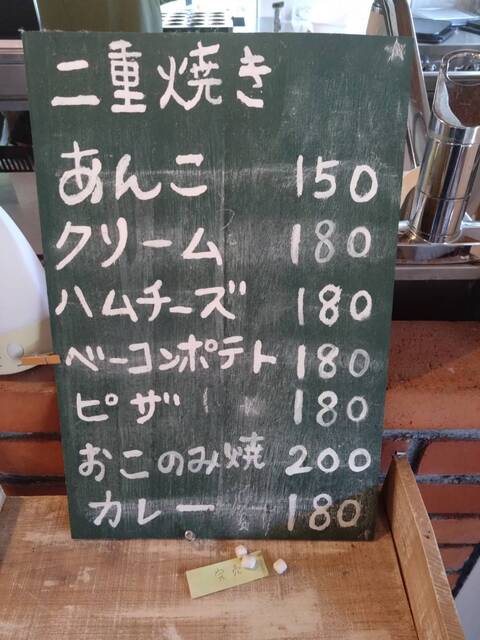 二重焼き
あんこ 150
クリーム 180
ハムチーズ 180
ベーコンポテト 180
ピザ 180
おこのみ焼 200
カレー 180
完売